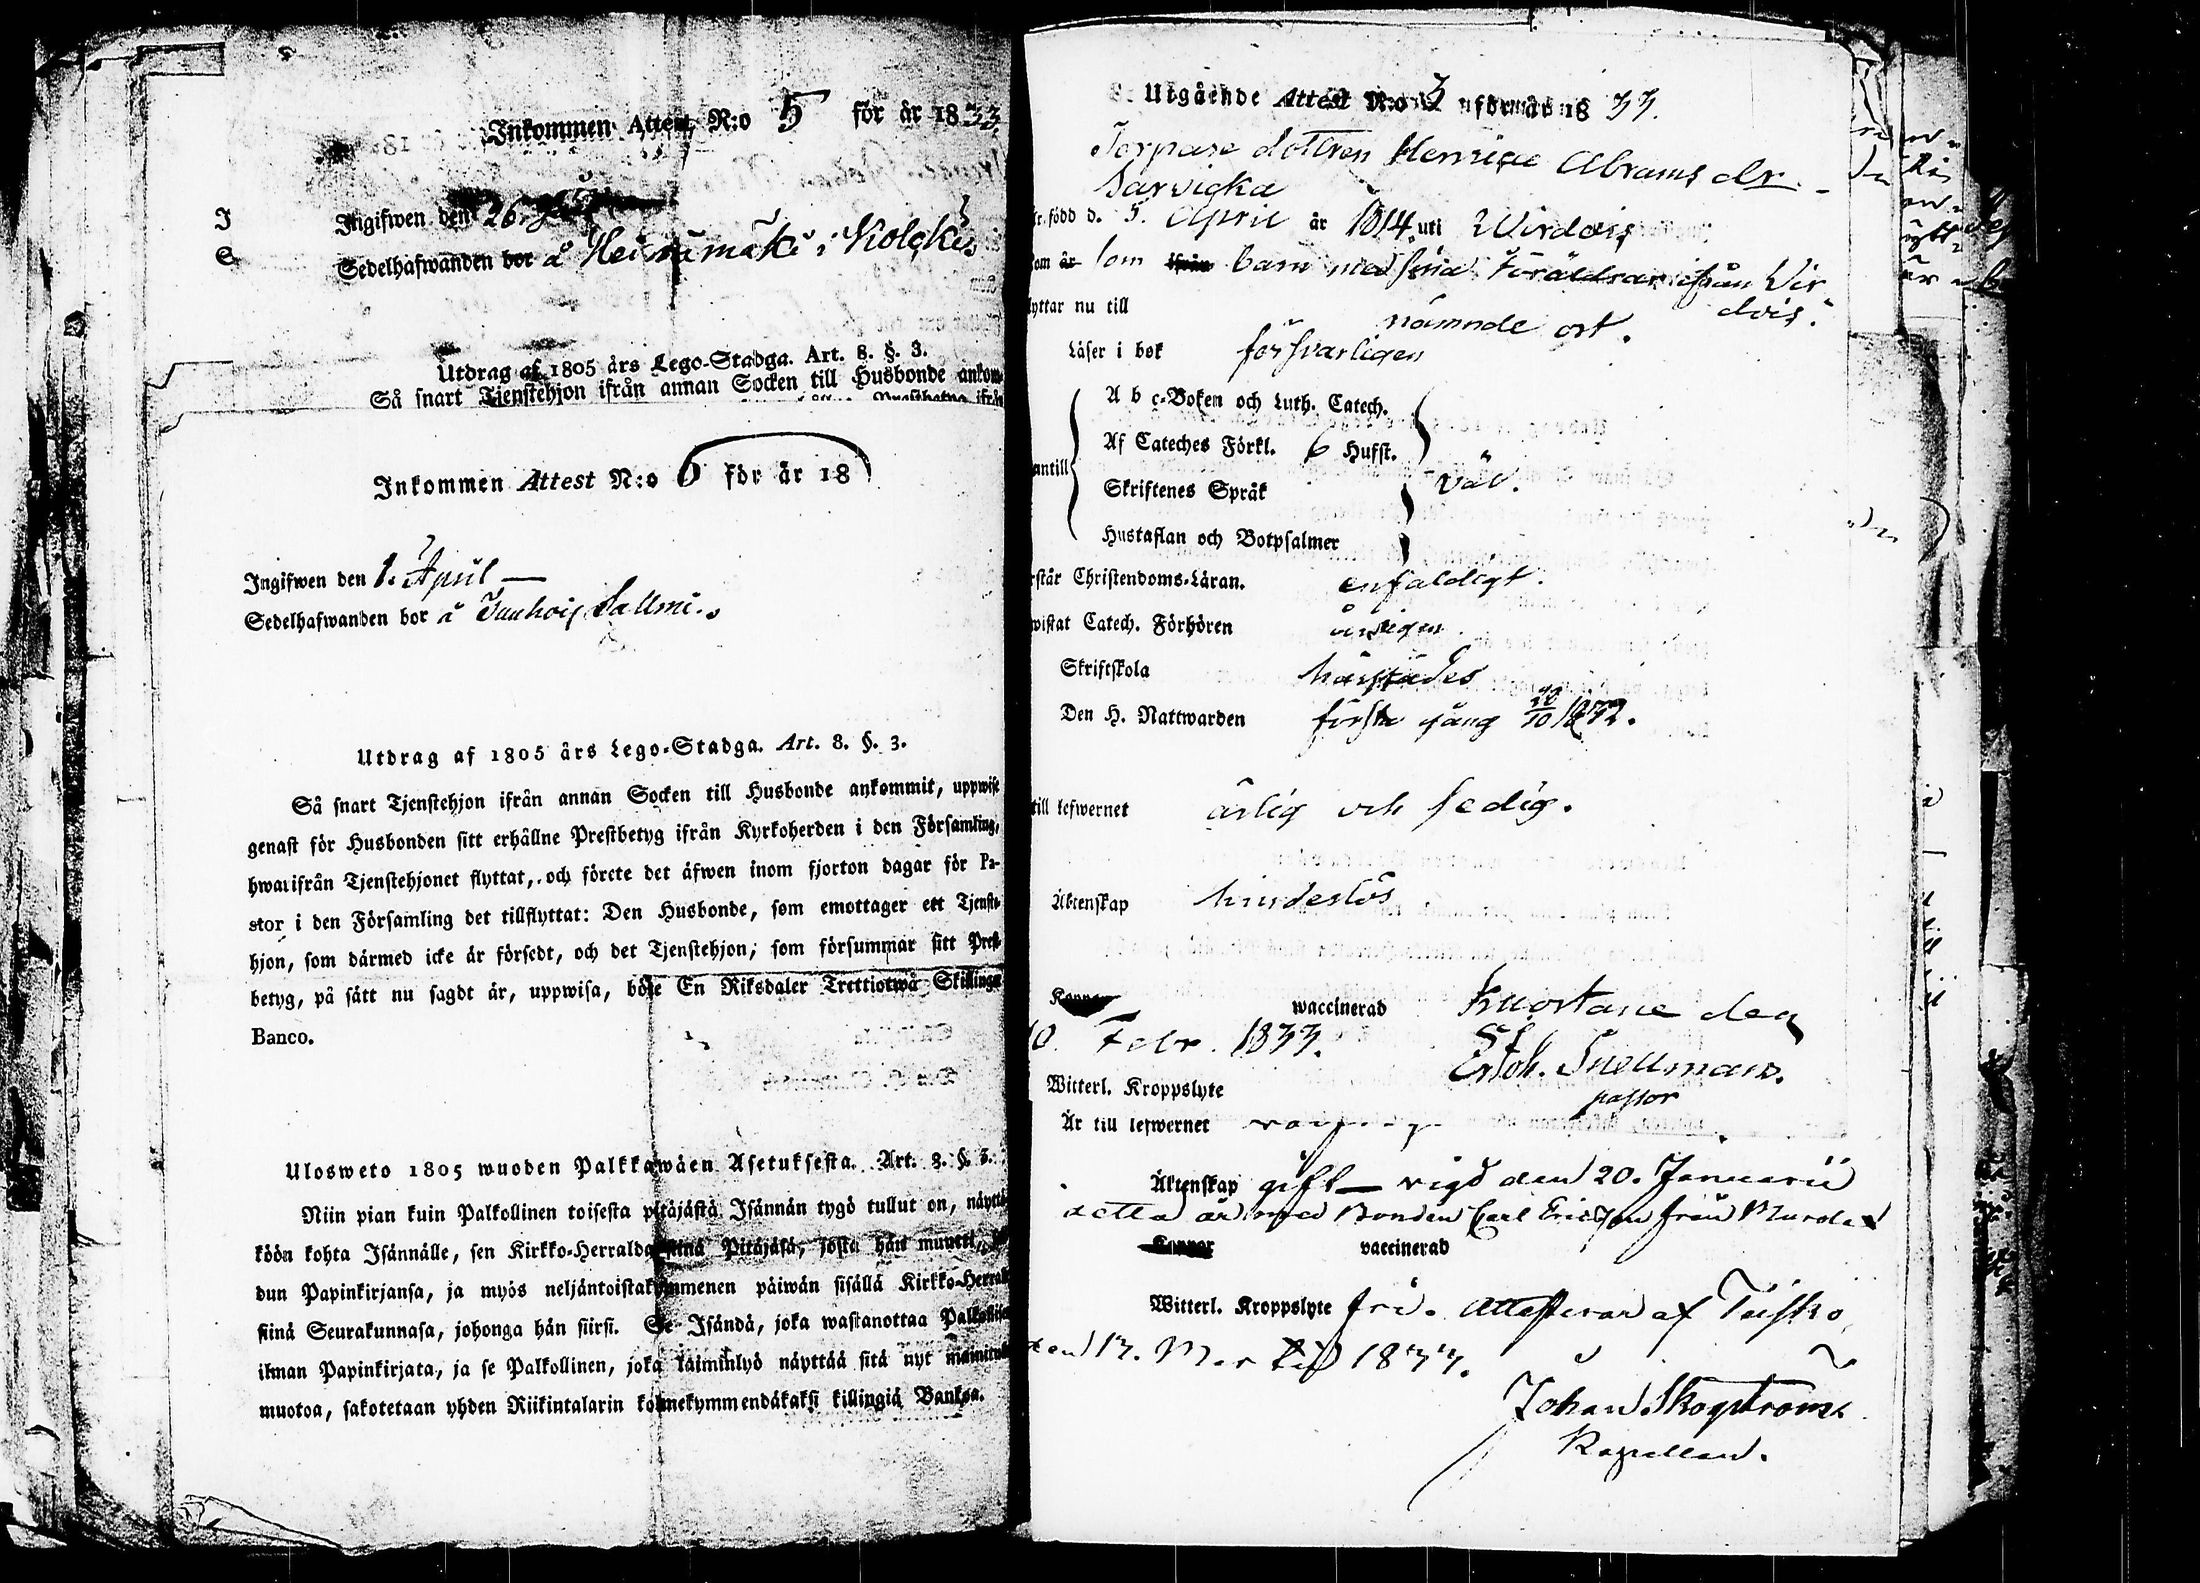 Inkommen Attest, N:o 5 för år 1833
Ingifwen den 26.
Sedelhafwanden bor å Heinimäki i Kolcki
Utdrag af 1805 års Lego-Stadga. Art. 8. §. 3.
Så snart Tjenstehjon ifrån annan Socken till Husbonde ankom-
Inkommen Attest N:o 6 för år 18
Ingifwen den 1. April
Sedelhafwanden bor å Sallmi.
Utdrag af 1805 års Lego-Stadga. Art. 8. §. 3.
Så snart Tjenstehjon ifrån annan Socken till Husbonde ankommit, uppwise
genast för Husbonden sitt erhållne Prestbetyg ifrån Kyrkoherden i den Församling,
hwarifrån Tjenstehjonet flyttat, och förete det äfwen inom fjorton dagar för Pa-
stor i den Församling det tillflyttat: Den Husbonde, som emottager ett Tjenste-
hjon, som därmed icke är försedt, och det Tjenstehjon, som försummar sitt Prest-
betyg, på sätt nu sagdt är, uppwisa, böte En Riksdaler Trettiotwå Skillingar
Banco.
Ulosweto 1805 wuoden Palkkawäen Asetuksesta. Art. 8. §. 3.
Niin pian kuin Palkollinen toisesta pitäjästä Isännän tygö tullut on, näyttä-
köön kohta Isännälle, sen Kirkko-Herralda siinä Pitäjäsä, josta hän muutti,
dun Papinkirjansa, ja myös neljäntoistakymmenen päiwän sisällä Kirkko-Herralle
siinä Seurakunnasa, johonga hän siirsi. Se Isändä, joka wastanottaa Palkollisen
ilman Papinkirjata, ja se Palkollinen, joka laiminlyö näyttää sitä nyt mainitulla
muotoa, sakotetaan yhden Riikintalarin kolmekymmendäkaksi killingiä Bankosa.
Utgående Attest N:o 3 för år 1833.
Torpare dottren Henrica Abrams dr.
Sarvicka
född d. 5. April år 1814 uti Wirdois
om är som ifrån barn med sina Föräldrar ifrån Vir
dois.
lyttar nu till nämnde ort.
Läser i bok försvarligen
antill
A b c-Boken och Luth. Catech.
Af Cateches Förkl. 6 Hufst.
Skriftenes Språk väl.
Hustaflan och Botpsalmer
rstår Christendoms-Läran. enfaldigt.
wistat Catech. Förhören årligen.
Skriftskola härstädes
Den H. Nattwarden första gång
till lefwernet ärlig och sedig.
Äktenskap hinderlös
Koppor waccinerad Kuortane den
Febr. 1833. Snellman.
pastor
Witterl. Kroppslyte
Är till lefwernet
Äktenskap gift — vigd den 20. Januarii
detta år med Bonden Carl Ericsson från Murole
Koppor vaccinerad
Witterl. Kroppslyte fri. Attesterar af Teisko
den 13. Martii 1833.
Johan Skogström.
Kapellan.